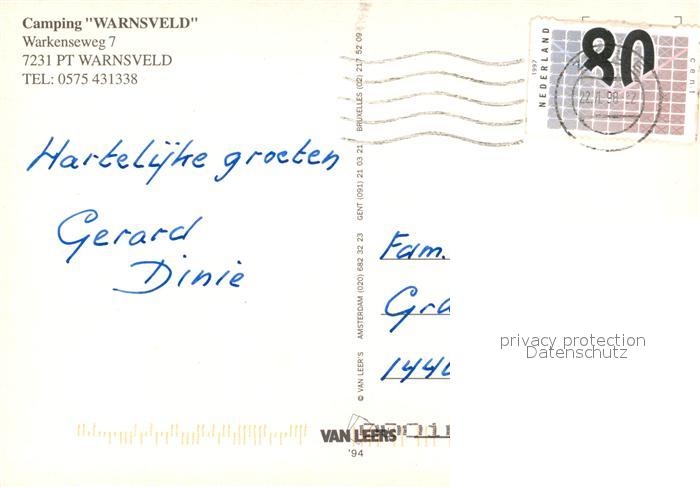 Camping "WARNSVELD"
Warkenseweg 7
7231 PT WARNSVELD
TEL: 0575 431338
Hartelijke groeten
Gerard
Dinie
© VAN LEER'S AMSTERDAM (020) 682 32 23 GENT (091) 21 03 21 BRUXELLES (02) 217 52 09
NEDERLAND
1997
80
cent
Fam.
Gra
144
privacy protection
Datenschutz
VAN LEERS
'94